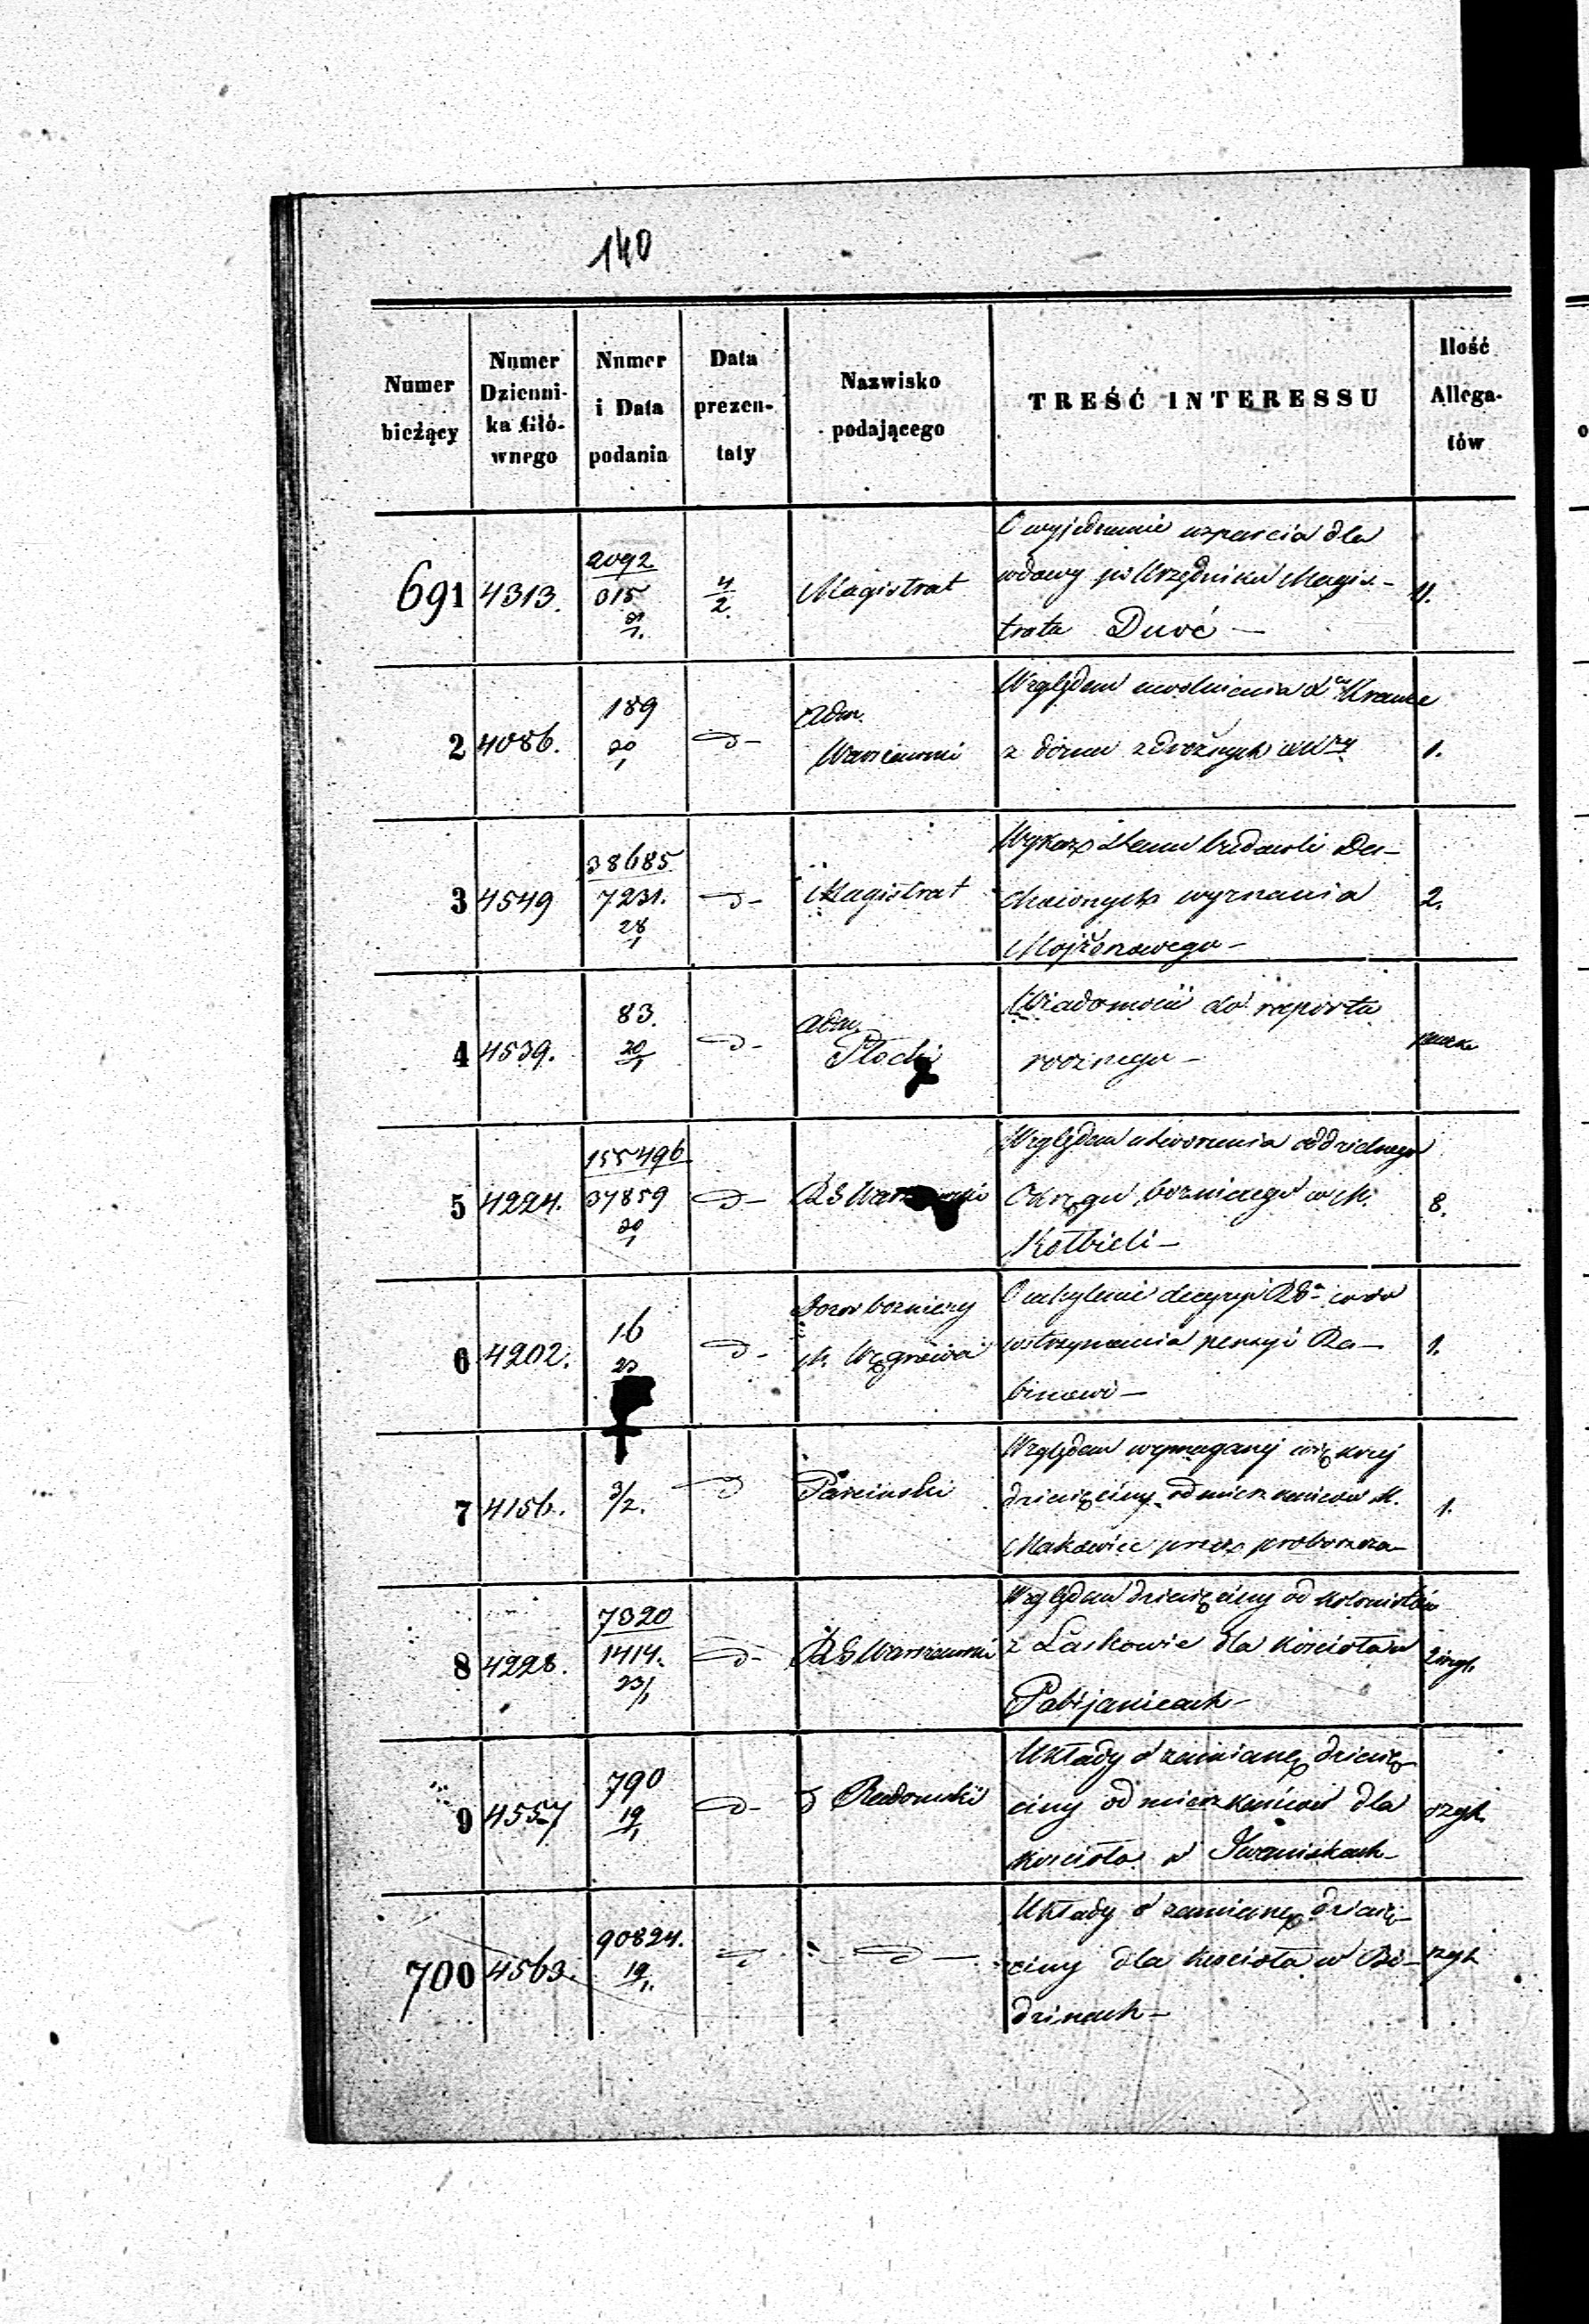 140
Numer bieżący
Numer Dzienni-ka Głó-wnego
Numer i Data podania
Data prezen-taty
Nazwisko podającego
TREŚĆ INTERESSU
Ilość Allega-tów
691 4313. 2092 315 21/1. 4/2. Magistrat
O wyjednanie wsparcia dla
wdowy po Urzędniku Magis-
tratu Duvć —
2 4086. 189 20/1 — d — Adm. Warszawski
Względem uwolnienia Krauze
z domu zdrożnych 1.
3 4549 38685 7231. 28/1 — d — Magistrat
Wykaz stanu budowli Du-
chownych wyznania 2.
Mojżeszowego —
4 4539. 83. 20/1 — d — Adm. Płocki
Wiadomość do raportu
rocznego —
5 4224. 155496 37859 20/1 — d — RG Warszawski
Względem utworzenia oddzielnego
Okręgu bożniczego w M. 8.
Kołbieli —
6 4202. 16 23 — d — Dozór bożniczy M. Węgrowa
O uchylenie decyzyi RG co do
wstrzymania pensyi Ra- 1.
binowi —
7 4156. 3/2. — d Parciński
Względem wymaganej większej
dziesięciny od mieszkańców M. 1.
Makowiec przez proboszcza —
8 4228. 7320 1414. 23/1 — d — RG Warszawski
Względem dziesięciny od kolonistów
z Laskowic dla kościoła w
Pabijanicach —
9 4557 790 19/1 — d — d Radomski
Układy o zamianę dziesię
ciny od mieszkańców dla
kościoła w Iwaniskach —
700 4563. 90824. 19/1. — d — — d —
Układy o zamianę dziesię-
ciny dla kościoła w Bi-
dzinach —